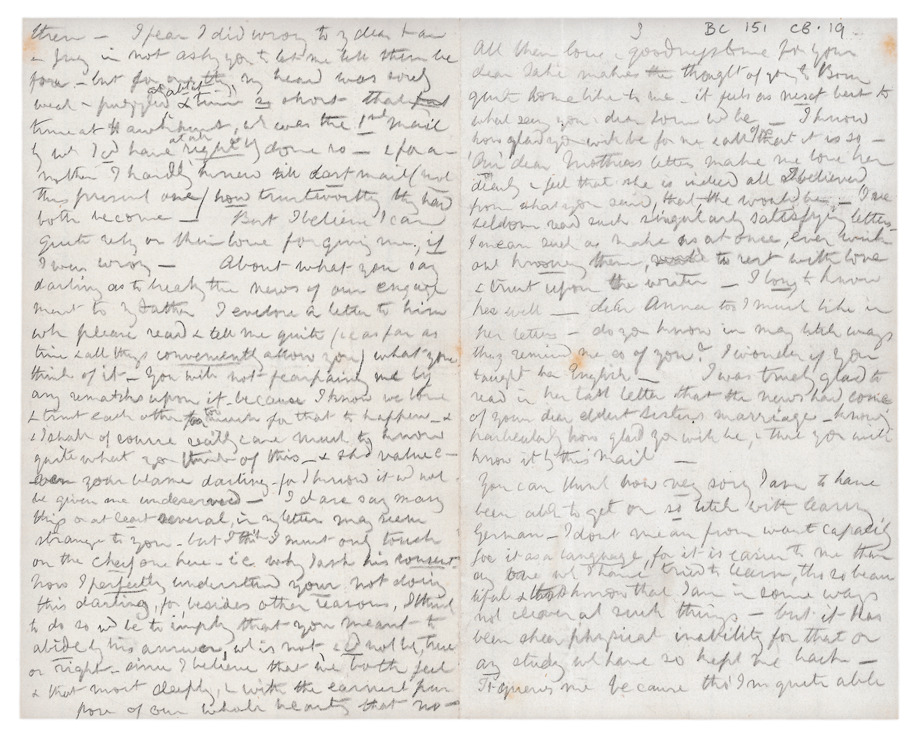 them — I fear I did wrong to my dear
in Jury in not asking you to let me tell them be
fore — but my head was sorely
weak & puzzled & time so short that
time at Hawkhurst, wh was the 1st mail
by wh I cd have at all rightly done so — & for a-
nother I hardly knew till last mail (not
this present one) how trustworthy they had
both become — But I believe I can
quite rely on their love forgiving me, if
I was wrong — About what you say
darling as to breaking the news of our engage
ment to my Father I enclose a letter to him
wh please read & tell me quite (ie as far as
time & all things conveniently allow you) what you
think of it — You will not fear paining me by
any remarks upon it — because I know we love
& trust each other too much for that to happen — &
& I shall of course really care much to know
quite what you think of this — & shd value —
even your blame darling — for I know it wd not
be given me undeserved — I dare say many
things or at least several, in my letter may seem
strange to you — but I think I must only touch
on the chief one here — i.e. why I ask his consent
how I perfectly understand your not doing
this darling, for besides other reasons, I think
to do so wd be to imply that you meant to
abide by his answer, wh is not & cd not be, true
or right — since I believe that we both feel
& that most deeply, & with the earnest pur
pose of our whole hearts that no —
3 BC 151 CB. 19.
All their love & goodness for your
dear sake makes the thought of going to Bonn
quite homelike to me — it feels as next best to
what seeing your dear town wd be — I know
how glad you will be for me & all that it is so —
Our dear Mother's letters make me love her
dearly & feel that she is indeed all I believed
from what you said, that she would be — I've
seldom read such singularly satisfying letters —
I mean such as make us at once, even with
out knowing them, to rest with love
& trust upon the writer — I long to know
her well — dear Anna too I much like in
her letters — do you know in many little ways
they remind me so of you? I wonder if you
taught her English — I was truly glad to
read in her last letter that the news had come
of your dear eldest Sister's marriage — knowing
particularly how glad you will be, & that you will
know it by this mail —
You can think how very sorry I am to have
been able to get on so little with learning
German — I dont mean from want capacity
for it as a language, for it is easier to me than
any one wh I have tried to learn, tho so beau
tiful & tho I know that I am in some ways
not clever at such things — but it has
been sheer physical inability for that or
any study wh have so kept me back —
It grieves me because tho' I'm quite able